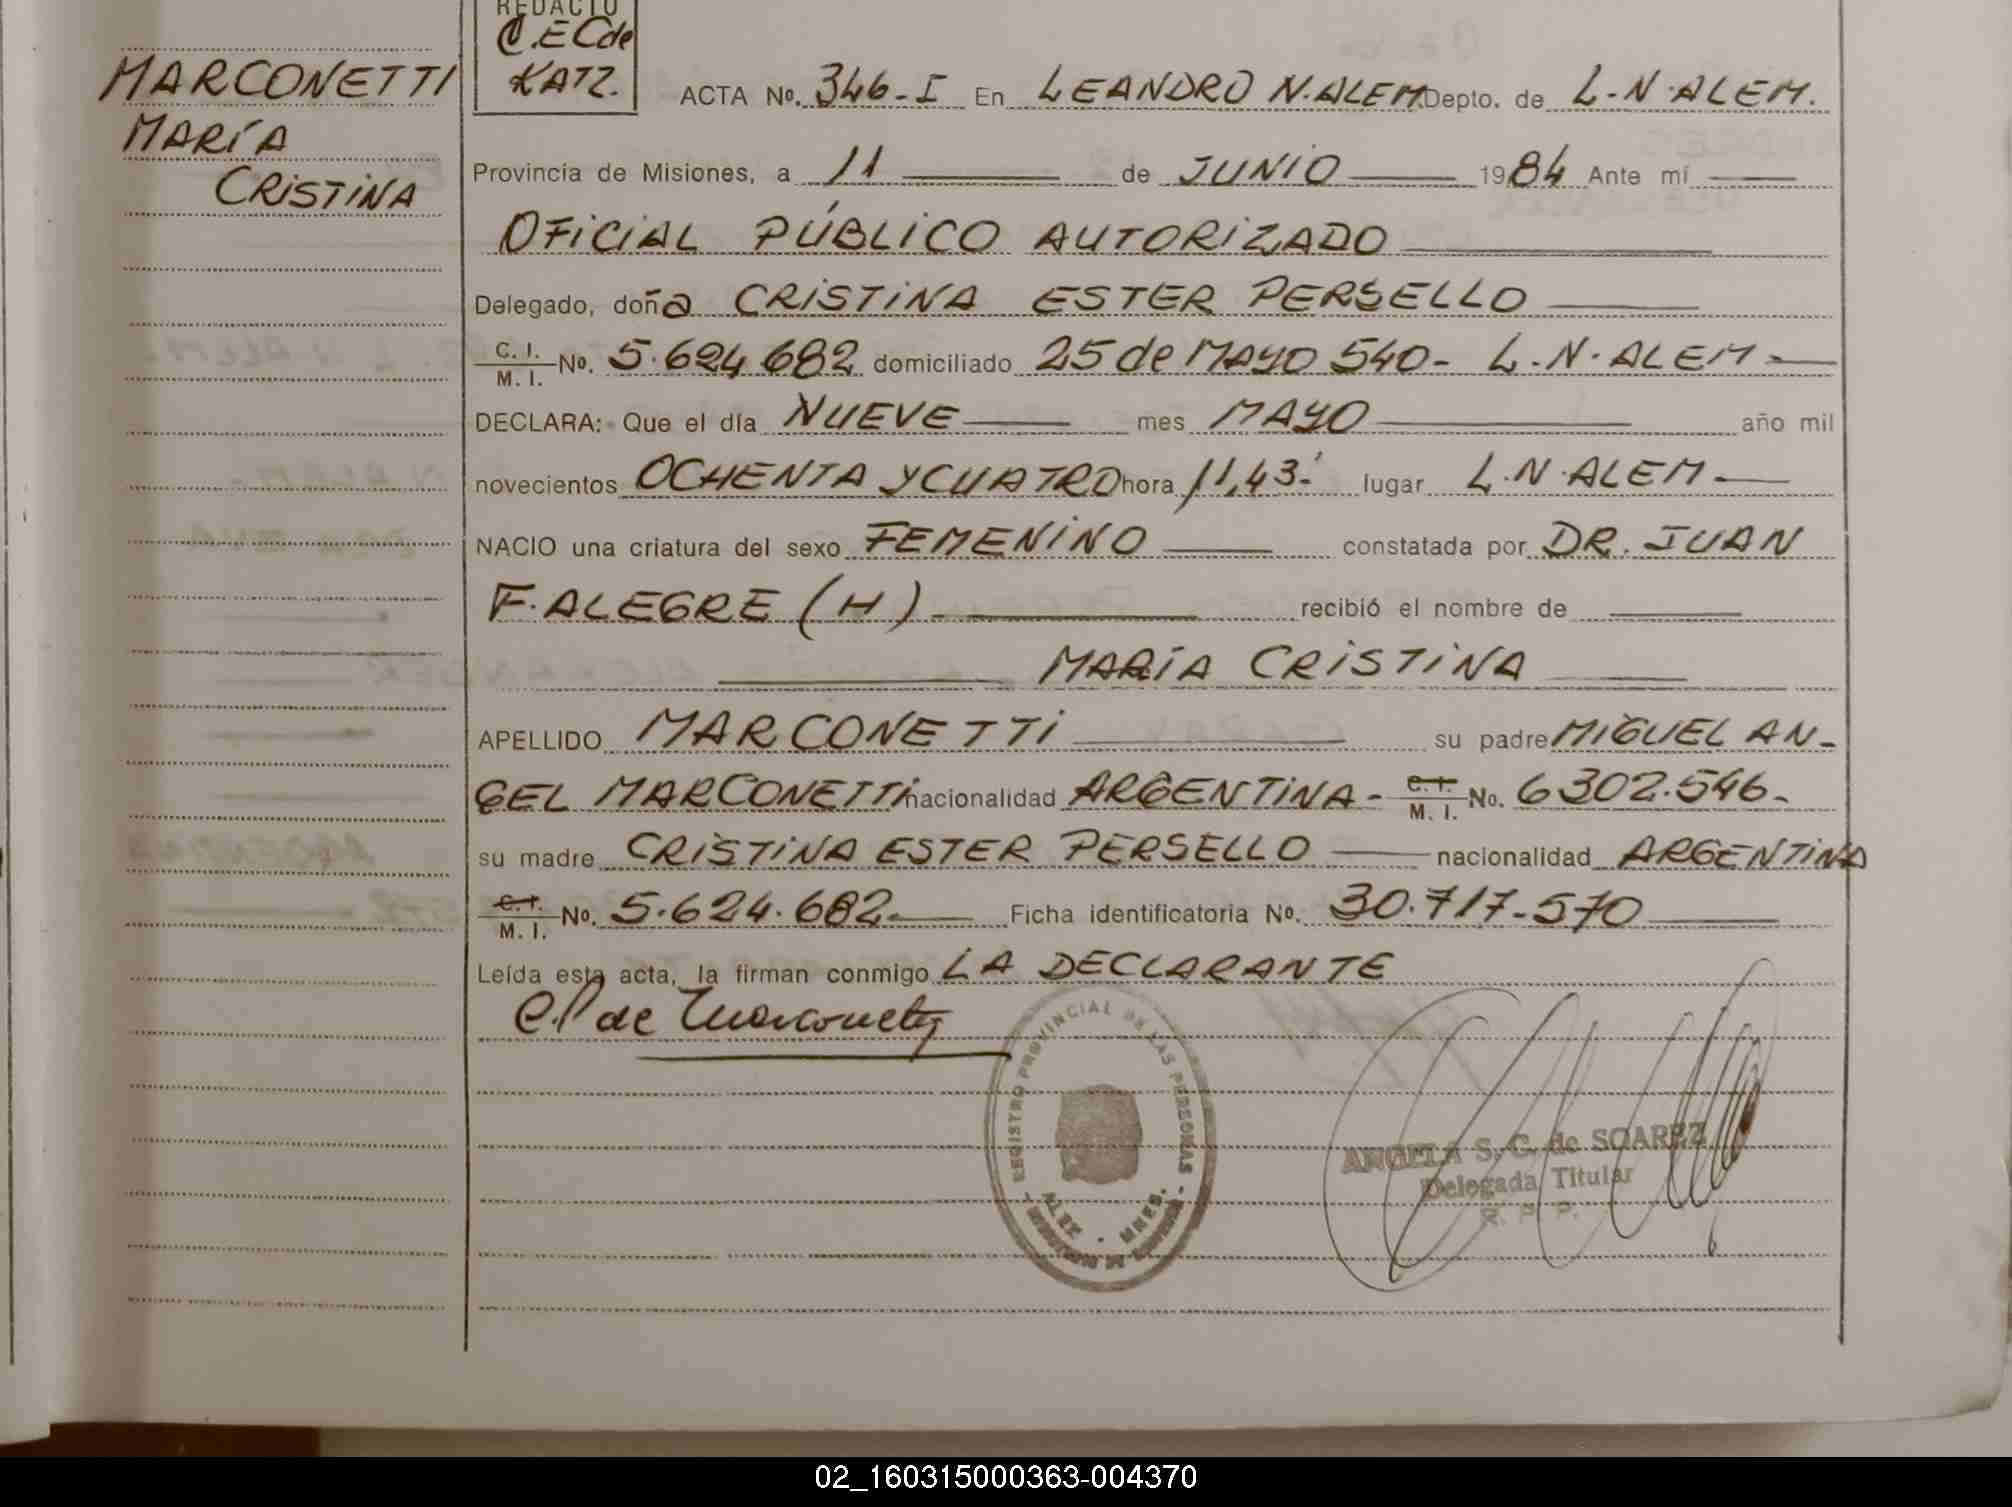 MARCONETTI
MARÍA
CRISTINA
REDACTO
C.E.C de
KATZ.
ACTA No. 346-I En LEANDRO N. ALEM Depto. de L.N. ALEM.
Provincia de Misiones, a 11 de JUNIO 1984 Ante mí
OFICIAL PÚBLICO AUTORIZADO
Delegado, doña CRISTINA ESTER PERSELLO
C. I. / M. I. No. 5.624.682 domiciliado 25 de MAYO 540- L.N. ALEM-
DECLARA: Que el día NUEVE mes MAYO año mil
novecientos OCHENTA Y CUATRO hora 11,43.' lugar L.N. ALEM-
NACIO una criatura del sexo FEMENINO constatada por DR. JUAN
F. ALEGRE (H) recibió el nombre de
MARÍA CRISTINA
APELLIDO MARCONETTI su padre MIGUEL AN-
GEL MARCONETTI nacionalidad ARGENTINA- C. I. / M. I. No. 6302.546-
su madre CRISTINA ESTER PERSELLO nacionalidad ARGENTINA
C. I. / M. I. No. 5.624.682- Ficha identificatoria No. 30.717-570
Leída esta acta, la firman conmigo LA DECLARANTE
C.P de Marconetti
REGISTRO PROVINCIAL DE LAS PERSONAS
ALEM - MNES.
ANGELA S. C. de SOAREZ
Delegada Titular
R. P. P.
02_160315000363-004370